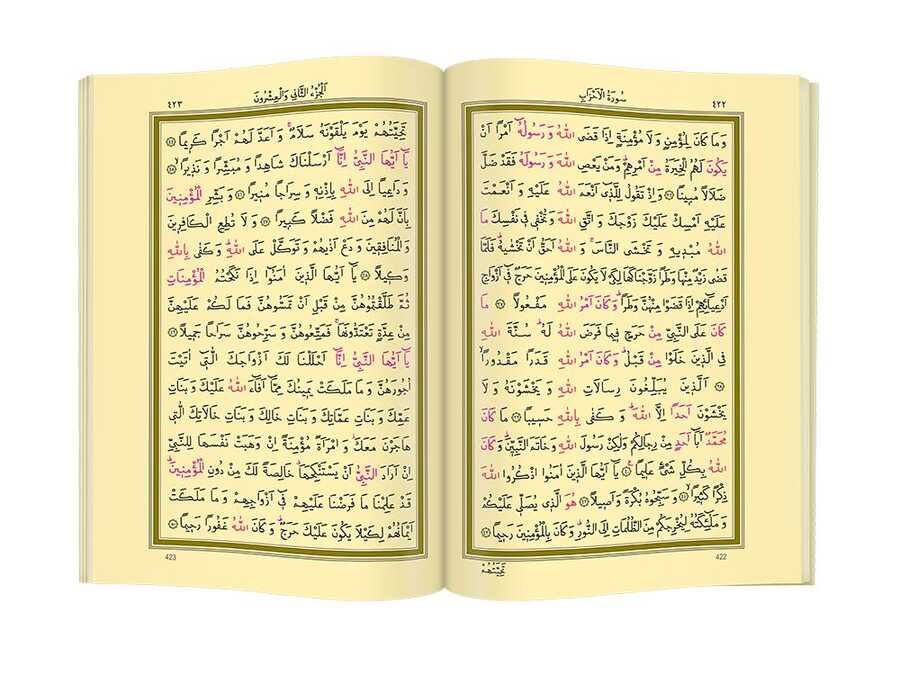 ٤٢٢
سُورَةُ الْاَحْزَابِ
وَمَا كَانَ لِمُؤْمِنٍ وَلَا مُؤْمِنَةٍ اِذَا قَضَى اللّٰهُ وَرَسُولُهُٓ اَمْرًا اَنْ
يَكُونَ لَهُمُ الْخِيَرَةُ مِنْ اَمْرِهِمْۜ وَمَنْ يَعْصِ اللّٰهَ وَرَسُولَهُ فَقَدْ ضَلَّ
ضَلَالًا مُب۪ينًا ﴿٣٦﴾ وَاِذْ تَقُولُ لِلَّذ۪ٓي اَنْعَمَ اللّٰهُ عَلَيْهِ وَاَنْعَمْتَ
عَلَيْهِ اَمْسِكْ عَلَيْكَ زَوْجَكَ وَاتَّقِ اللّٰهَ وَتُخْف۪ي ف۪ي نَفْسِكَ مَا
اللّٰهُ مُبْد۪يهِ وَتَخْشَى النَّاسَۚ وَاللّٰهُ اَحَقُّ اَنْ تَخْشٰيهُۜ فَلَمَّا
قَضٰى زَيْدٌ مِنْهَا وَطَرًا زَوَّجْنَاكَهَا لِكَيْ لَا يَكُونَ عَلَى الْمُؤْمِن۪ينَ حَرَجٌ ف۪ٓي اَزْوَاجِ
اَدْعِيَٓائِهِمْ اِذَا قَضَوْا مِنْهُنَّ وَطَرًاۜ وَكَانَ اَمْرُ اللّٰهِ مَفْعُولًا ﴿٣٧﴾ مَا
كَانَ عَلَى النَّبِيِّ مِنْ حَرَجٍ ف۪يمَا فَرَضَ اللّٰهُ لَهُۜ سُنَّةَ اللّٰهِ
فِي الَّذ۪ينَ خَلَوْا مِنْ قَبْلُۜ وَكَانَ اَمْرُ اللّٰهِ قَدَرًا مَقْدُورًاۙ
﴿٣٨﴾ اَلَّذ۪ينَ يُبَلِّغُونَ رِسَالَاتِ اللّٰهِ وَيَخْشَوْنَهُ وَلَا
يَخْشَوْنَ اَحَدًا اِلَّا اللّٰهَۜ وَكَفٰى بِاللّٰهِ حَس۪يبًا ﴿٣٩﴾ مَا كَانَ
مُحَمَّدٌ اَبَٓا اَحَدٍ مِنْ رِجَالِكُمْ وَلٰكِنْ رَسُولَ اللّٰهِ وَخَاتَمَ النَّبِيّ۪نَۜ وَكَانَ
اللّٰهُ بِكُلِّ شَيْءٍ عَل۪يمًا۟ ﴿٤٠﴾ يَٓا اَيُّهَا الَّذ۪ينَ اٰمَنُوا اذْكُرُوا اللّٰهَ
ذِكْرًا كَث۪يرًاۙ ﴿٤١﴾ وَسَبِّحُوهُ بُكْرَةً وَاَص۪يلًا ﴿٤٢﴾ هُوَ الَّذ۪ي يُصَلّ۪ي عَلَيْكُمْ
وَمَلٰٓئِكَتُهُ لِيُخْرِجَكُمْ مِنَ الظُّلُمَاتِ اِلَى النُّورِۜ وَكَانَ بِالْمُؤْمِن۪ينَ رَح۪يمًا ﴿٤٣﴾
422
تَحِيَّتُهُمْ
اَلْجُزْءُ الثَّانِي وَالْعِشْرُونَ
٤٢٣
تَحِيَّتُهُمْ يَوْمَ يَلْقَوْنَهُ سَلَامٌۚ وَاَعَدَّ لَهُمْ اَجْرًا كَر۪يمًا ﴿٤٤﴾
يَٓا اَيُّهَا النَّبِيُّ اِنَّٓا اَرْسَلْنَاكَ شَاهِدًا وَمُبَشِّرًا وَنَذ۪يرًاۙ ﴿٤٥﴾
وَدَاعِيًا اِلَى اللّٰهِ بِاِذْنِه۪ وَسِرَاجًا مُن۪يرًا ﴿٤٦﴾ وَبَشِّرِ الْمُؤْمِن۪ينَ
بِاَنَّ لَهُمْ مِنَ اللّٰهِ فَضْلًا كَب۪يرًا ﴿٤٧﴾ وَلَا تُطِعِ الْكَافِر۪ينَ
وَالْمُنَافِق۪ينَ وَدَعْ اَذٰيهُمْ وَتَوَكَّلْ عَلَى اللّٰهِۜ وَكَفٰى بِاللّٰهِ
وَك۪يلًا ﴿٤٨﴾ يَٓا اَيُّهَا الَّذ۪ينَ اٰمَنُٓوا اِذَا نَكَحْتُمُ الْمُؤْمِنَاتِ
ثُمَّ طَلَّقْتُمُوهُنَّ مِنْ قَبْلِ اَنْ تَمَسُّوهُنَّ فَمَا لَكُمْ عَلَيْهِنَّ
مِنْ عِدَّةٍ تَعْتَدُّونَهَاۚ فَمَتِّعُوهُنَّ وَسَرِّحُوهُنَّ سَرَاحًا جَم۪يلًا ﴿٤٩﴾
يَٓا اَيُّهَا النَّبِيُّ اِنَّٓا اَحْلَلْنَا لَكَ اَزْوَاجَكَ الّٰت۪ٓي اٰتَيْتَ
اُجُورَهُنَّ وَمَا مَلَكَتْ يَم۪ينُكَ مِمَّٓا اَفَٓاءَ اللّٰهُ عَلَيْكَ وَبَنَاتِ
عَمِّكَ وَبَنَاتِ عَمَّاتِكَ وَبَنَاتِ خَالِكَ وَبَنَاتِ خَالَاتِكَ الّٰت۪ي
هَاجَرْنَ مَعَكَۘ وَامْرَاَةً مُؤْمِنَةً اِنْ وَهَبَتْ نَفْسَهَا لِلنَّبِيِّ
اِنْ اَرَادَ النَّبِيُّ اَنْ يَسْتَنْكِحَهَاۗ خَالِصَةً لَكَ مِنْ دُونِ الْمُؤْمِن۪ينَۜ
قَدْ عَلِمْنَا مَا فَرَضْنَا عَلَيْهِمْ ف۪ٓي اَزْوَاجِهِمْ وَمَا مَلَكَتْ
اَيْمَانُهُمْ لِكَيْلَا يَكُونَ عَلَيْكَ حَرَجٌۜ وَكَانَ اللّٰهُ غَفُورًا رَح۪يمًا ﴿٥٠﴾
423